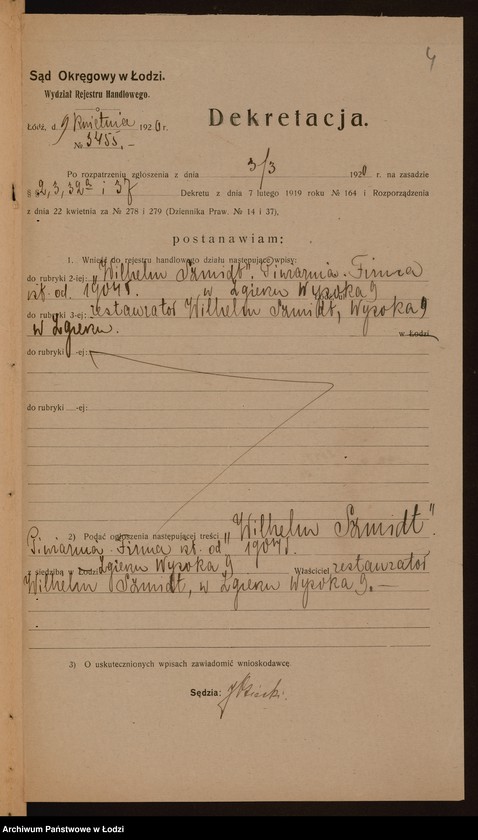 4
Sąd Okręgowy w Łodzi.
Wydział Rejestru Handlowego.
Łódź, d. 9 kwietnia 1920 r.
№ 3455.-
Dekretacja.
Po rozpatrzeniu zgłoszenia z dnia 3/3 1920 r. na zasadzie
§ 2, 3, 32a i 37 Dekretu z dnia 7 lutego 1919 roku № 164 i Rozporządzenia
z dnia 22 kwietnia za № 278 i 279 (Dziennika Praw. № 14 i 37),
postanawiam:
1. Wnieść do rejestru handlowego działu następujące wpisy:
do rubryki 2-iej: "Wilhelm Szmidt". Piwiarnia. Firma
ist. od. 1904 r. w Zgierzu Wysoka 9
do rubryki 3-ej: restaurator Wilhelm Szmidt, Wysoka 9
w Zgierzu. w Łodzi
do rubryki -ej:
do rubryki ....-ej:
2) Podać ogłoszenia następującej treści "Wilhelm Szmidt".
Piwiarnia. Firma ist. od 1904 r.
z siedzibą w Łodzi Zgierzu Wysoka 9 Właściciel restaurator
Wilhelm Szmidt, w Zgierzu Wysoka 9.—
3) O uskutecznionych wpisach zawiadomić wnioskodawcę.
Sędzia:
Archiwum Państwowe w Łodzi